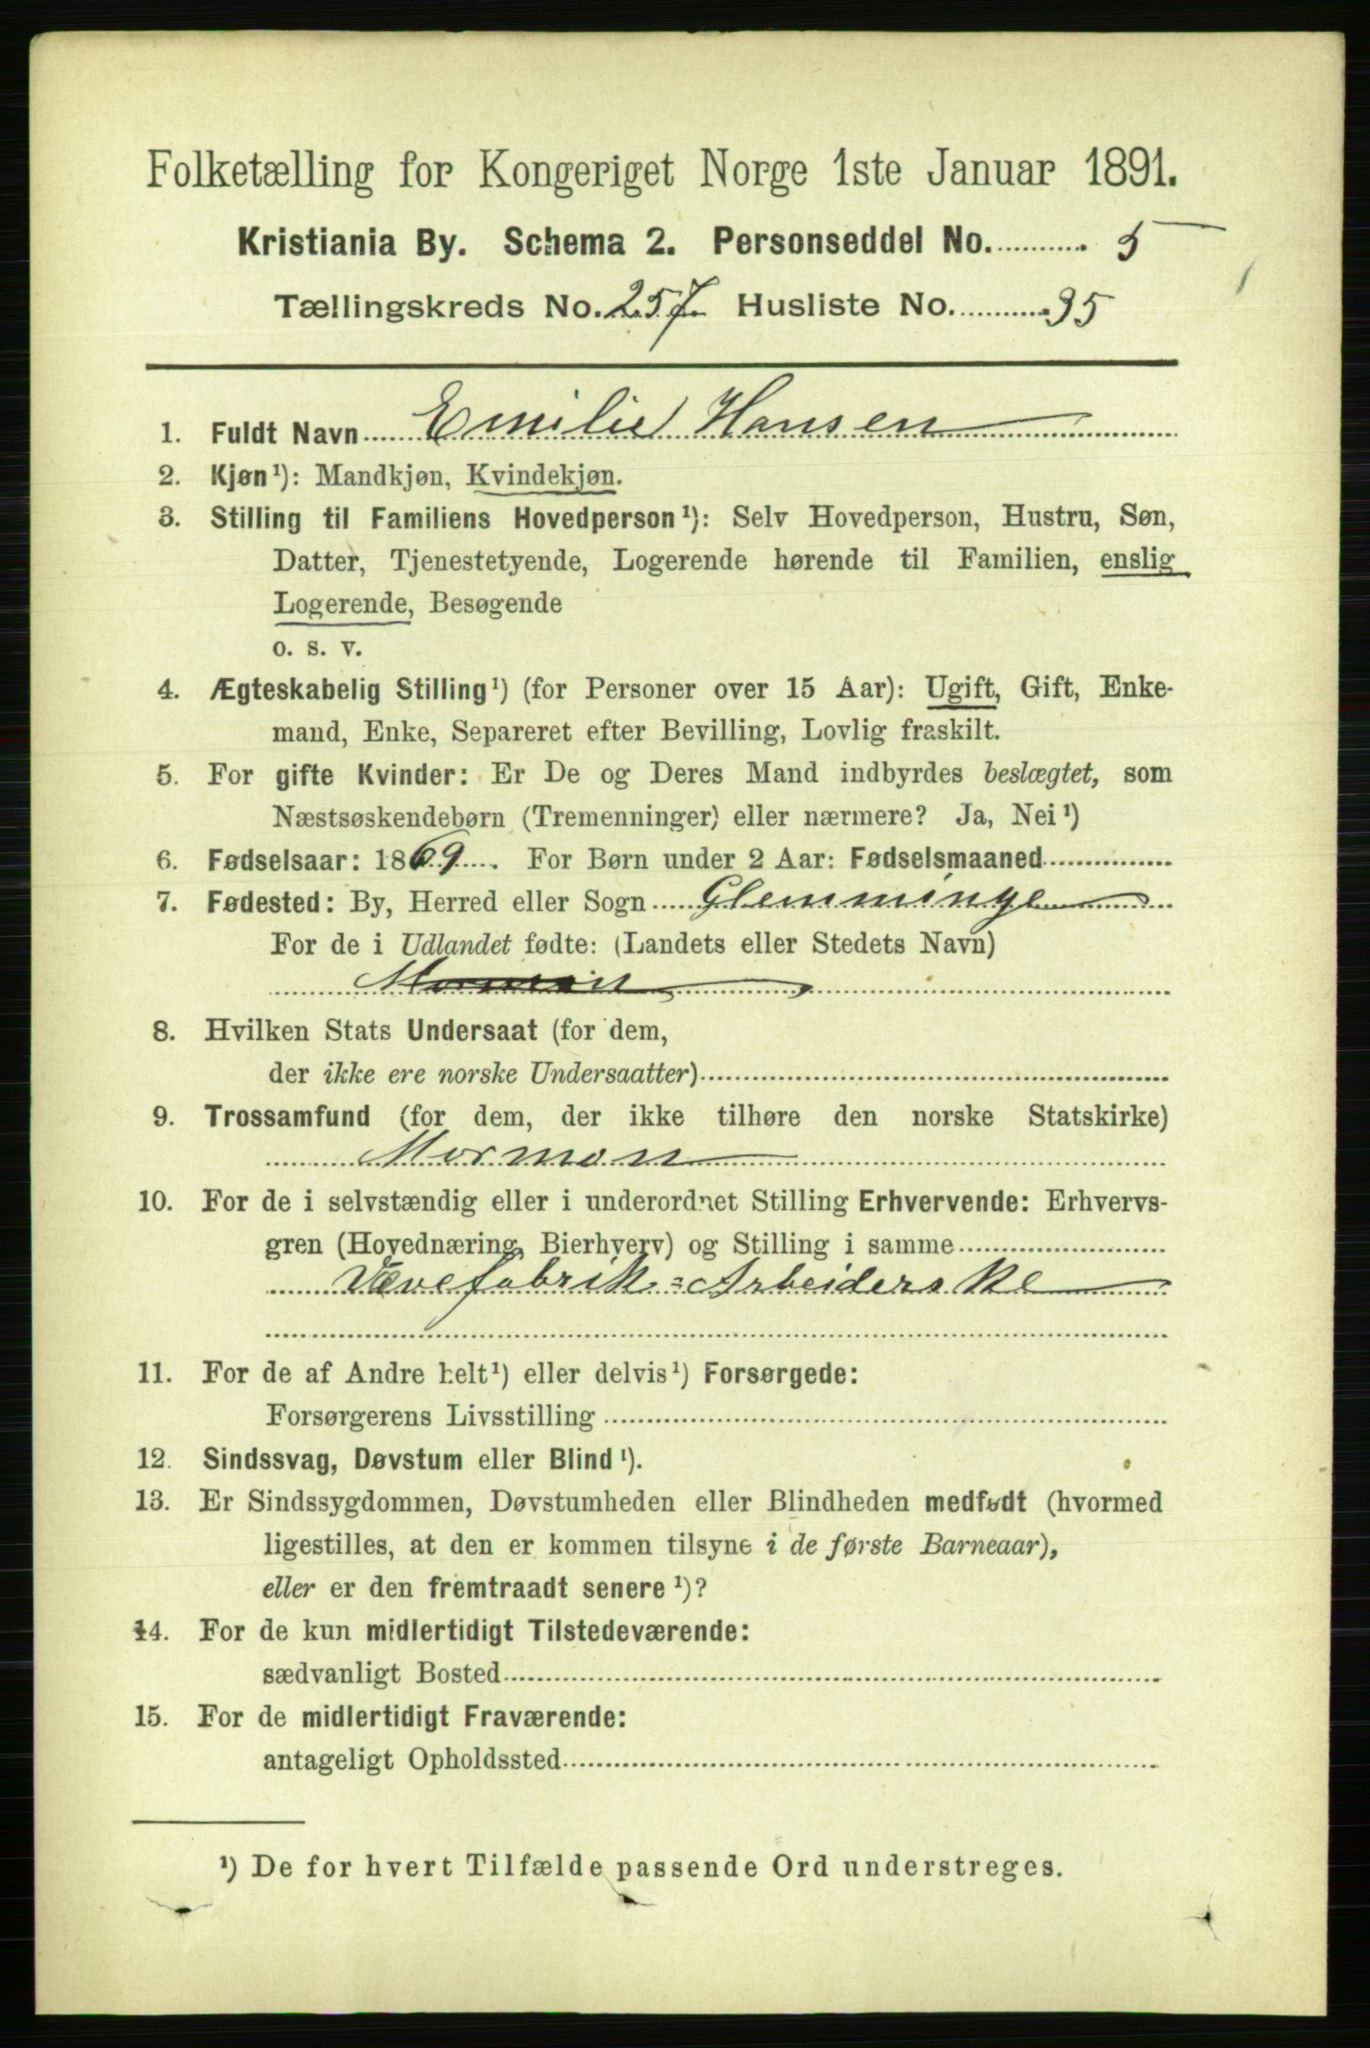 Folketælling for Kongeriget Norge 1ste Januar 1891.
Kristiania By. Schema 2. Personseddel No. 5
Tællingskreds No. 257 Husliste No. 35
1. Fuldt Navn Emilie Hansen
2. Kjøn¹): Mandkjøn, Kvindekjøn.
3. Stilling til Familiens Hovedperson¹): Selv Hovedperson, Hustru, Søn,
Datter, Tjenestetyende, Logerende hørende til Familien, enslig
Logerende, Besøgende
o. s. v.
4. Ægteskabelig Stilling¹) (for Personer over 15 Aar): Ugift, Gift, Enke-
mand, Enke, Separeret efter Bevilling, Lovlig fraskilt.
5. For gifte Kvinder: Er De og Deres Mand indbyrdes beslægtet, som
Næstsøskendebørn (Tremenninger) eller nærmere? Ja, Nei¹)
6. Fødselsaar: 1869. For Børn under 2 Aar: Fødselsmaaned
7. Fødested: By, Herred eller Sogn Glemminge
For de i Udlandet fødte: (Landets eller Stedets Navn)
Mormon
8. Hvilken Stats Undersaat (for dem,
der ikke ere norske Undersaatter)
9. Trossamfund (for dem, der ikke tilhøre den norske Statskirke)
Mormon
10. For de i selvstændig eller i underordnet Stilling Erhvervende: Erhvervs-
gren (Hovednæring, Bierhverv) og Stilling i samme
Vævefabrik=Arbeiderske
11. For de af Andre helt¹) eller delvis¹) Forsørgede:
Forsørgerens Livsstilling
12. Sindssvag, Døvstum eller Blind¹).
13. Er Sindssygdommen, Døvstumheden eller Blindheden medfødt (hvormed
ligestilles, at den er kommen tilsyne i de første Barneaar),
eller er den fremtraadt senere¹)?
14. For de kun midlertidigt Tilstedeværende:
sædvanligt Bosted
15. For de midlertidigt Fraværende:
antageligt Opholdssted
¹) De for hvert Tilfælde passende Ord understreges.